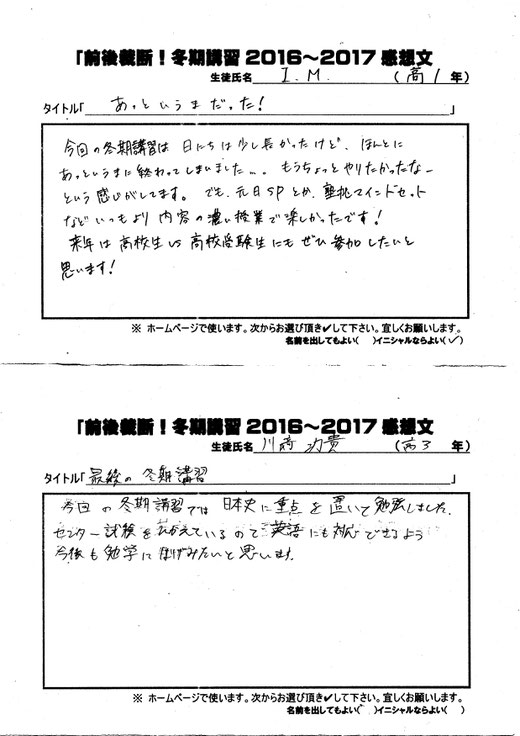 「前後裁断！冬期講習２０１６〜２０１７感想文
生徒氏名 I.M. （高1年）
タイトル「あっというまだった！」
今回の冬期講習は 日にちは少し長かったけど、ほんとに
あっというまに終わってしまいました… もうちょっとやりたかったなー
という感じがしてます。でも、元日SPとか、塾挑マインドセット
などいつもより内容の濃い授業で楽しかったです！
来年は高校生vs高校受験生にもぜひ参加したいと
思います！
※ ホームページで使います。次からお選び頂き✔して下さい。宜しくお願いします。
名前を出してもよい（ ）イニシャルならよい（✓）
「前後裁断！冬期講習２０１６〜２０１７感想文
生徒氏名 川崎 功貴 （高3年）
タイトル「最後の冬期講習」
今回の冬期講習では 日本史に重点を置いて勉強しました。
センター試験をひかえているので英語にも対応できるよう
今後も勉学にはげみたいと思います。
※ ホームページで使います。次からお選び頂き✔して下さい。宜しくお願いします。
名前を出してもよい（ ）イニシャルならよい（ ）